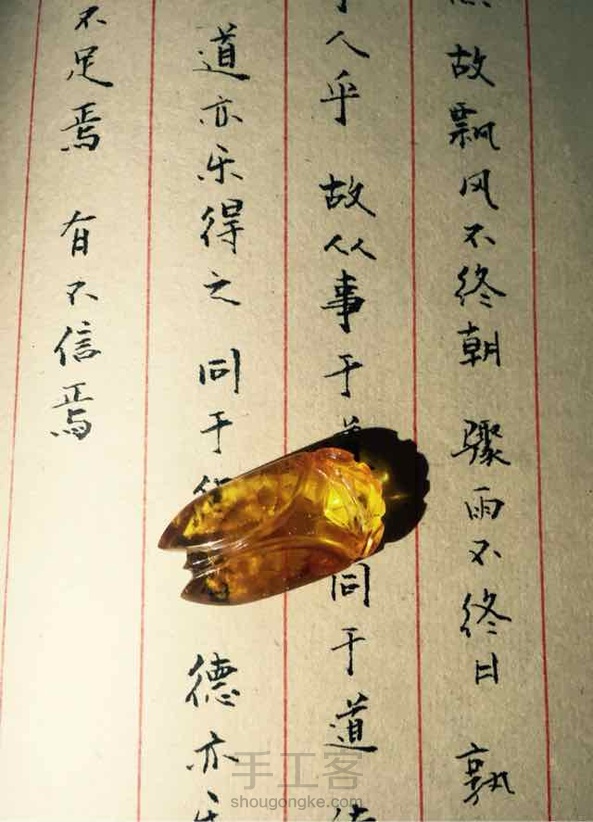 故飘风不终朝 骤雨不终日 孰
人乎 故从事于 同于道
道亦乐得之 同于 德亦乐
不足焉 有不信焉
手工客
shougongke.com